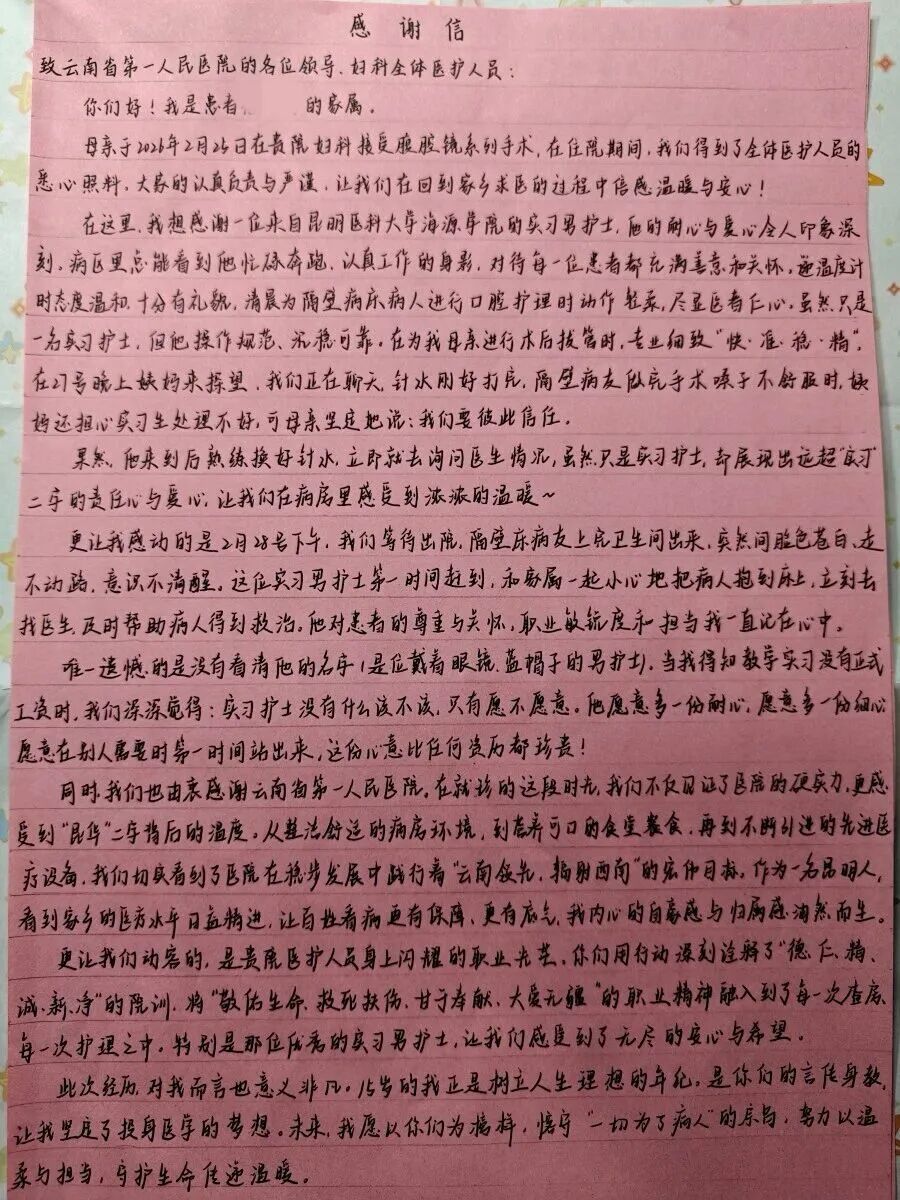 感谢信
致云南省第一人民医院的各位领导、妇科全体医护人员：
你们好！我是患者 的家属。
母亲于2026年2月25日在贵院妇科接受腹腔镜系列手术，在住院期间，我们得到了全体医护人员的
悉心照料，大家的认真负责与严谨，让我们在回到家乡求医的过程中倍感温暖与安心！
在这里，我想感谢一位来自昆明医科大学海源学院的实习男护士，他的耐心与爱心令人印象深
刻。病区里总能看到他忙碌奔跑、认真工作的身影，对待每一位患者都充满善意和关怀，递温度计
时态度温和、十分有礼貌，清晨为隔壁病床病人进行口腔护理时动作轻柔，尽显医者仁心。虽然只是
一名实习护士，但他操作规范、沉稳可靠。在为我母亲进行术后拔管时，专业细致“快·准·稳·精”，
在27号晚上姨妈来探望，我们正在聊天，针水刚好打完，隔壁病友做完手术嗓子不舒服时，姨
妈还担心实习生处理不好，可母亲坚定地说：我们要彼此信任。
果然，他来到后熟练换好针水，立即就去询问医生情况，虽然只是实习护士，却展现出远超“实习”
二字的责任心与爱心，让我们在病房里感受到浓浓的温暖~
更让我感动的是2月28号下午，我们等待出院，隔壁床病友上完卫生间出来，突然间脸色苍白、走
不动路，意识不清醒。这位实习男护士第一时间赶到，和家属一起小心地把病人抱到床上，立刻去
找医生，及时帮助病人得到救治。他对患者的尊重与关怀，职业敏锐度和担当我一直记在心中。
唯一遗憾的是没有看清他的名字（是位戴着眼镜、蓝帽子的男护士），当我得知教学实习没有正式
工资时，我们深深觉得：实习护士没有什么该不该，只有愿不愿意。他愿意多一份耐心，愿意多一份细心
愿意在别人需要时第一时间站出来，这份心意比任何资历都珍贵！
同时，我们也由衷感谢云南省第一人民医院，在就诊的这段时光，我们不仅见证了医院的硬实力，更感
受到“昆华”二字背后的温度。从整洁舒适的病房环境，到营养可口的食堂餐食，再到不断引进的先进医
疗设备，我们切实看到了医院在稳步发展中践行着“云南领先，辐射西南”的宏伟目标。作为一名昆明人，
看到家乡的医疗水平日益精进，让百姓看病更有保障、更有底气，我内心的自豪感与归属感油然而生。
更让我们动容的，是贵院医护人员身上闪耀的职业光芒。你们用行动深刻诠释了“德、仁、精、
诚、新、净”的院训，将“敬佑生命、救死扶伤、甘于奉献、大爱无疆”的职业精神融入到了每一次查房、
每一次护理之中。特别是那位优秀的实习男护士，让我们感受到了无尽的安心与希望。
此次经历，对我而言也意义非凡。15岁的我正是树立人生理想的年纪，是你们的言传身教，
让我坚定了投身医学的梦想。未来，我愿以你们为榜样，恪守“一切为了病人”的宗旨，努力以温
柔与担当，守护生命传递温暖。